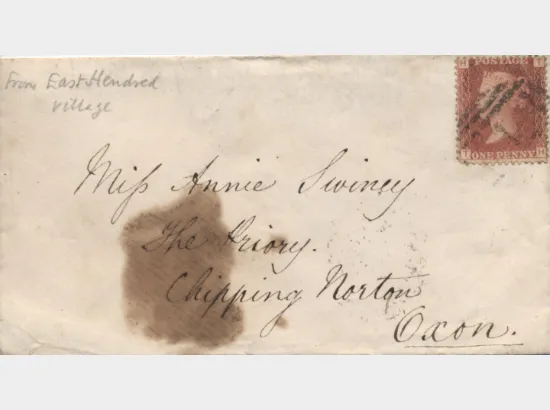 From East Hendred
village
POSTAGE
ONE PENNY
Miss Annie Swiney
The Priory.
Chipping Norton
Oxon.